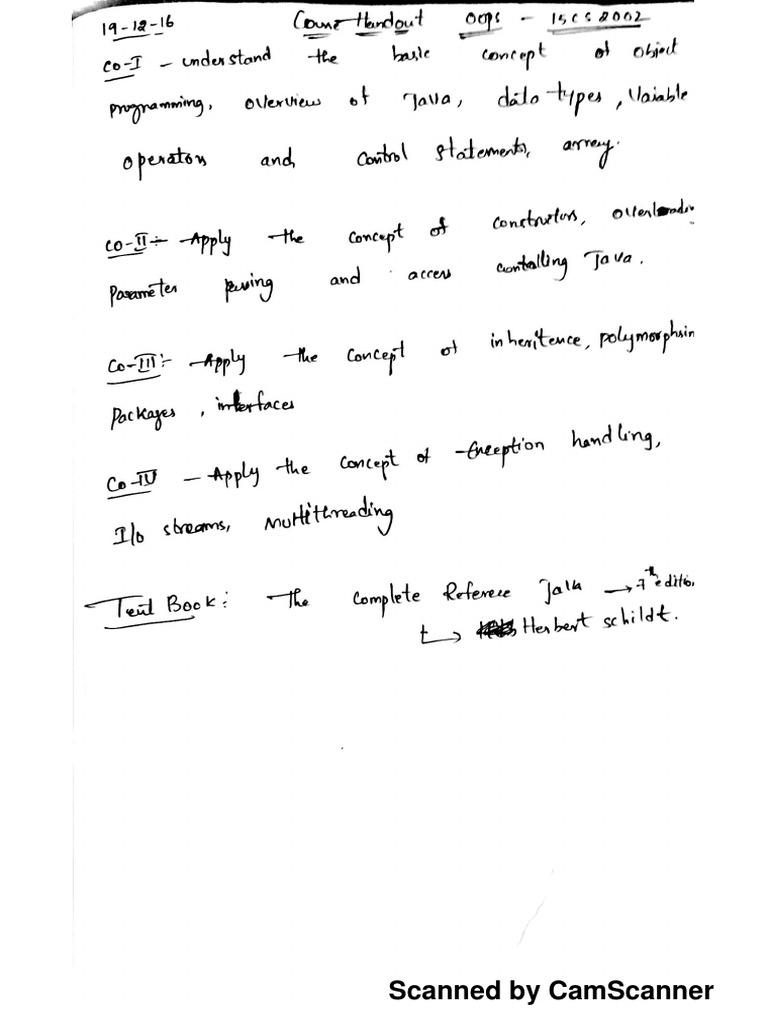 19-12-16 Course Handout OOPS - 15CS2002
CO-I - understand the basic concept of object
programming, overview of Java, data types, Variable
operators and control statements, array.
CO-II :- Apply the concept of constructors, overloadin
Parameter passing and access contolling Java.
CO-III :- Apply the concept of inheritence, polymorphsim
Packages, interfaces
CO-IV - Apply the concept of Exception handling,
I/o streams, Multithreading
Text Book : The Complete Referece Java → 7th edition
↳ Herbert schildt.
Scanned by CamScanner